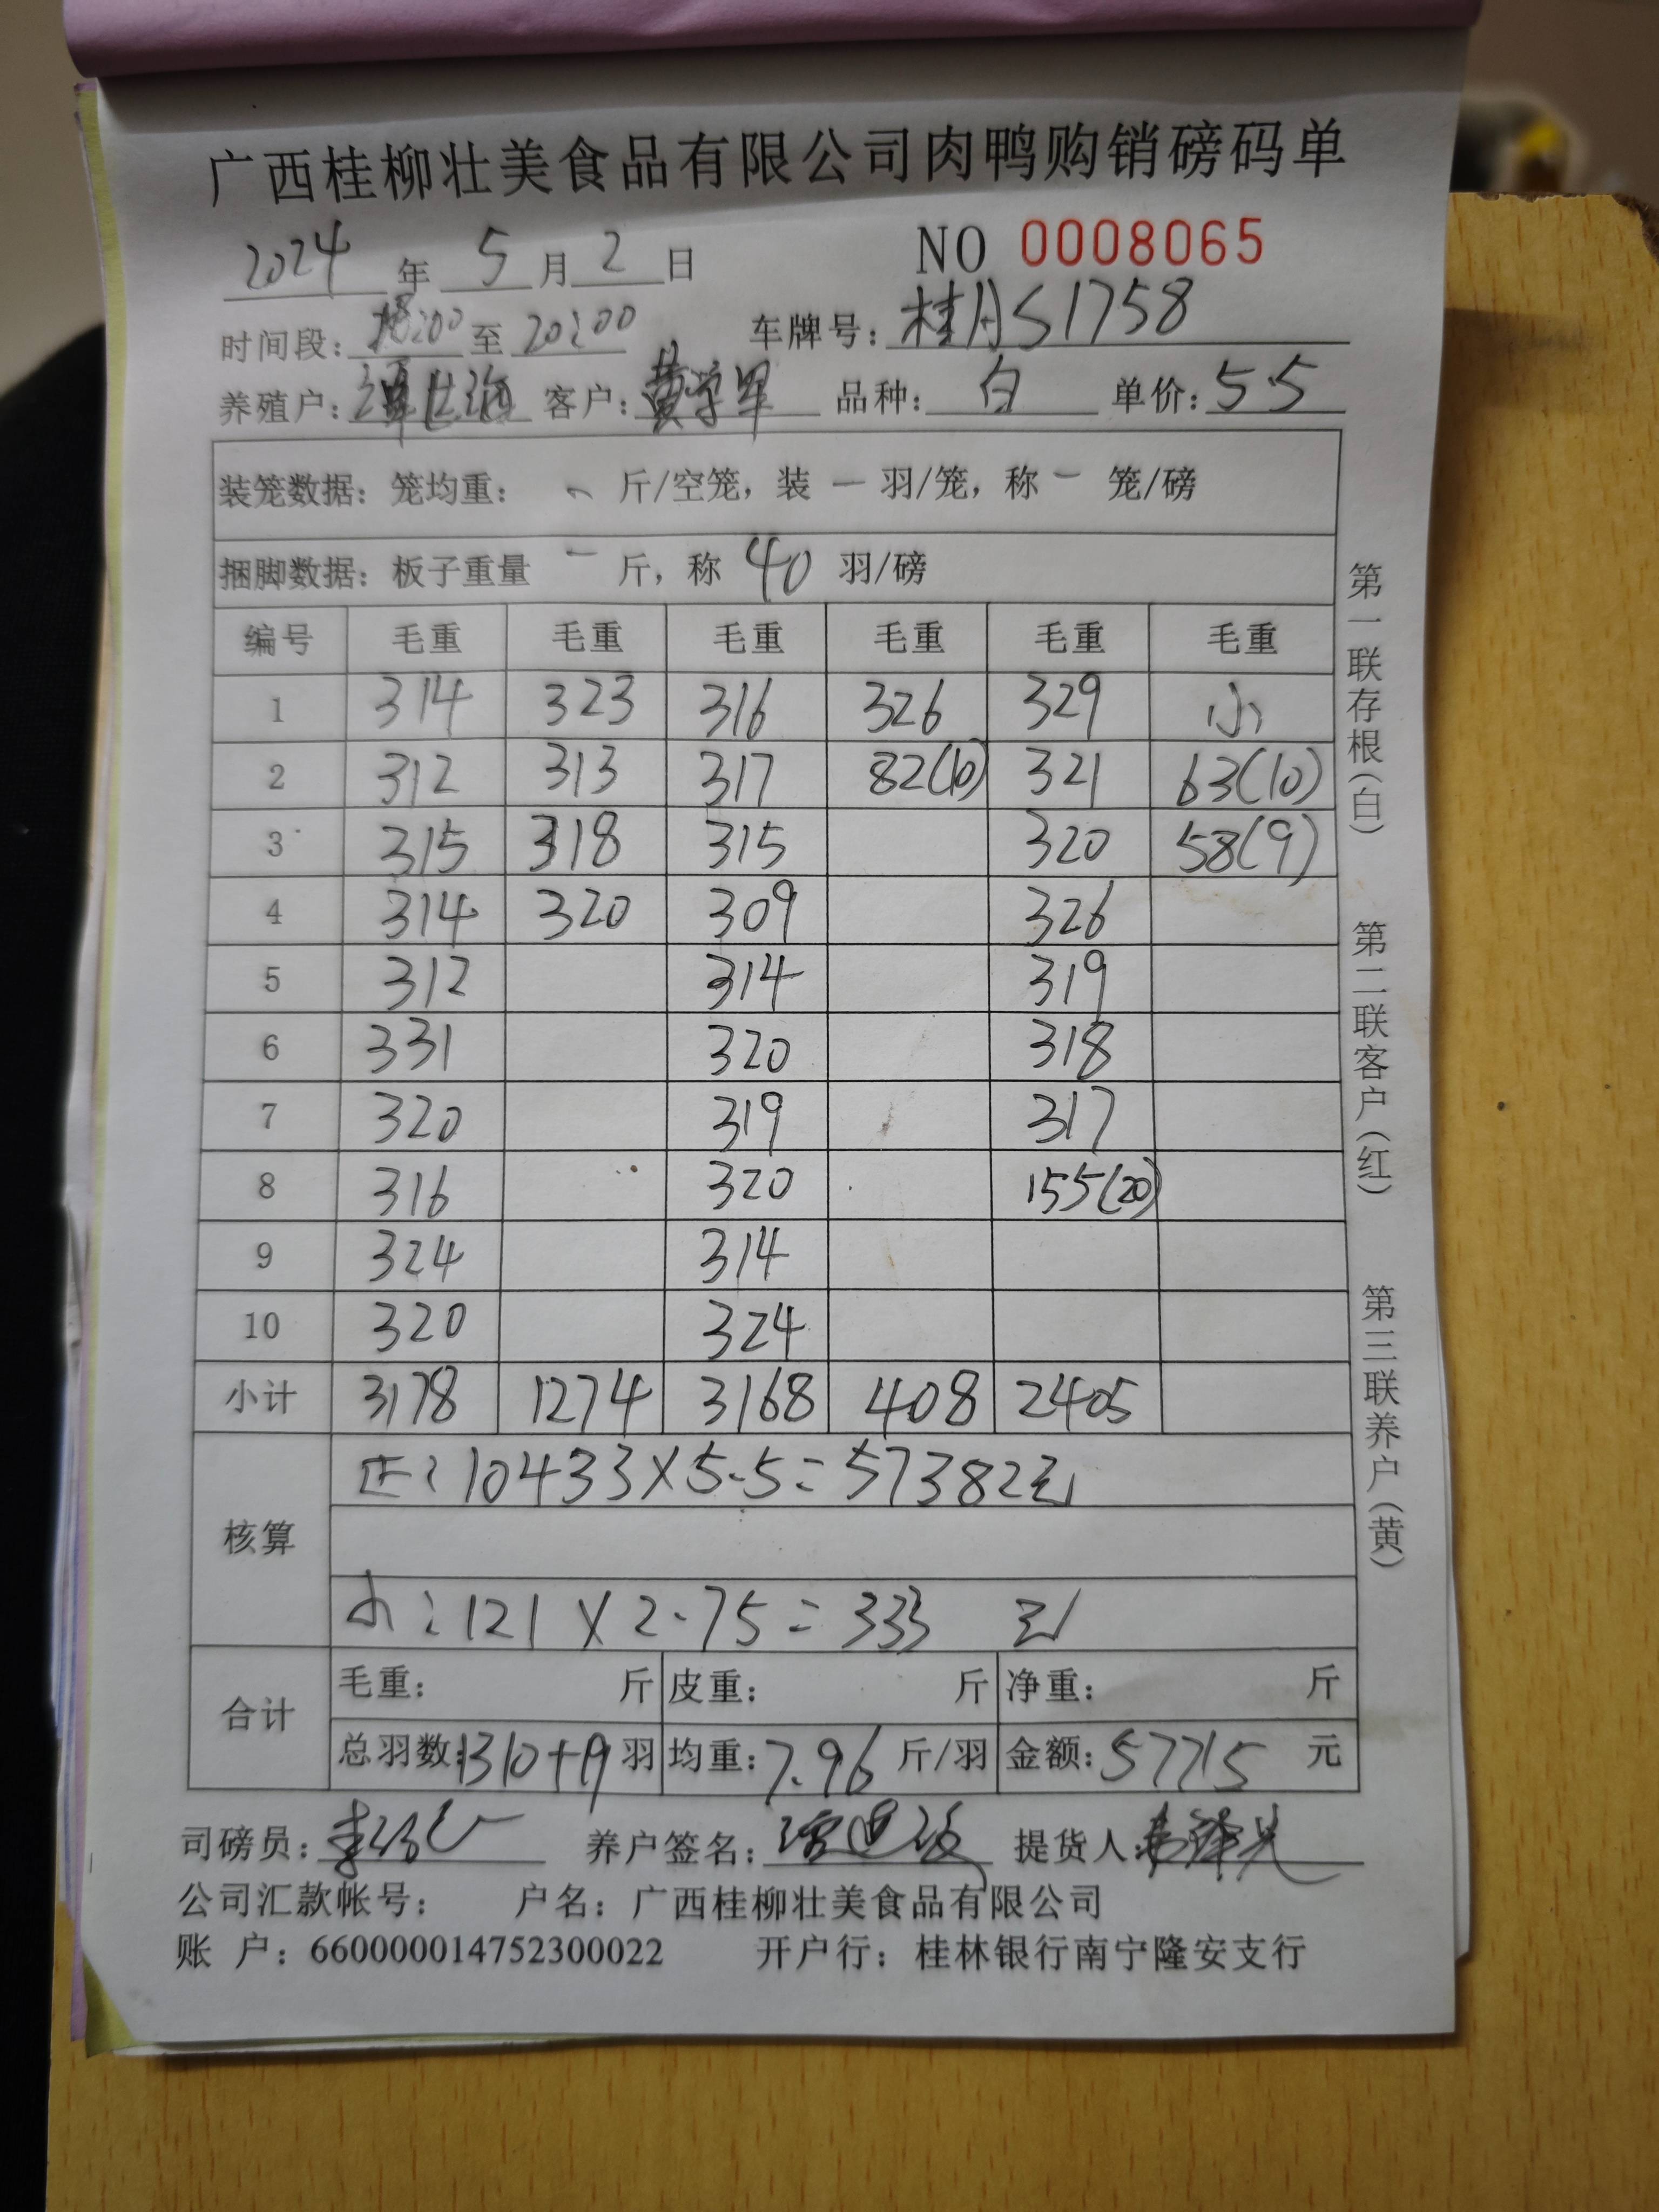 广西桂柳壮美食品有限公司肉鸭购销磅码单
2024年5月2日 NO 0008065
时间段: 18:00 至 20:00 车牌号: 桂AS1758
养殖户: 客户: 黄学军 品种: 白 单价: 5.5
装笼数据: 笼均重: 一 斤/空笼, 装 一 羽/笼, 称 一 笼/磅
捆脚数据: 板子重量 一 斤, 称 40 羽/磅
编号 毛重 毛重 毛重 毛重 毛重 毛重
1 314 323 316 326 329 小
2 312 313 317 82(10) 321 63(10)
3 315 318 315 320 58(9)
4 314 320 309 326
5 312 314 319
6 331 320 318
7 320 319 317
8 316 320 155(20)
9 324 314
10 320 324
小计 3178 1274 3168 408 2405
正: 10433×5.5=57382元
核算
小: 121×2.75=333 元
合计 毛重: 斤 皮重: 斤 净重: 斤
总羽数: 1310+19 羽 均重: 7.96 斤/羽 金额: 57715 元
司磅员: 养户签名: 提货人:
公司汇款帐号: 户名: 广西桂柳壮美食品有限公司
账 户: 660000014752300022 开户行: 桂林银行南宁隆安支行
第一联存根(白) 第二联客户(红) 第三联养户(黄)